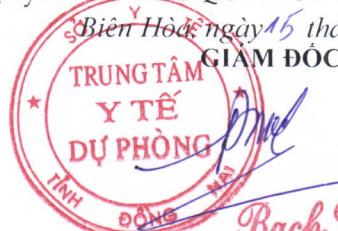 Biên Hòa, ngày 15 thá
GIÁM ĐỐC
SỞ Y TẾ
TRUNG TÂM
Y TẾ
DỰ PHÒNG
TỈNH ĐỒNG NAI
Bạch